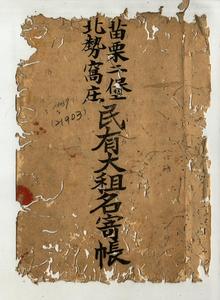 苗栗二堡
北勢窩庄
民有大租名寄帳
(21903)